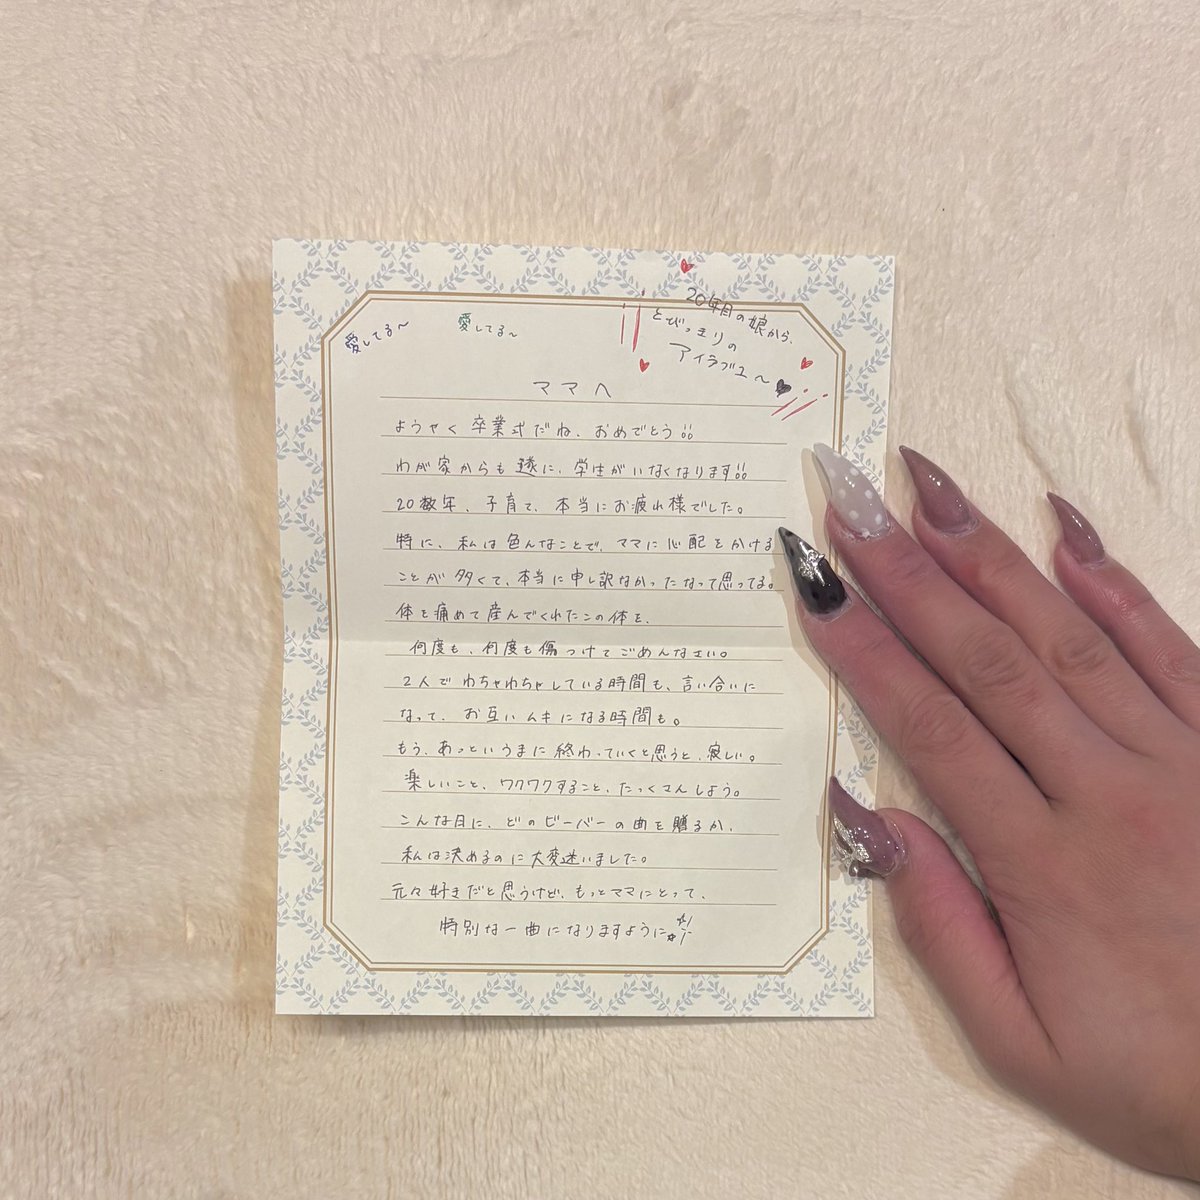 愛してる〜
愛してる〜
20年目の娘から、
とびっきりの
アイラブユ〜♥
ママへ
ようやく卒業式だね、おめでとう!!
わが家からも遂に、学生がいなくなります!!
20数年、子育て、本当にお疲れ様でした。
特に、私は色んなことで、ママに心配をかける
ことが多くて、本当に申し訳なかったなって思ってる。
体を痛めて産んでくれたこの体を、
何度も、何度も傷つけてごめんなさい。
2人でわちゃわちゃしている時間も、言い合いに
なって、お互いムキになる時間も。
もう、あっというまに終わっていくと思うと、寂しい。
楽しいこと、ワクワクすること、たっくさんしよう。
こんな日に、どのビーバーの曲を贈るか、
私は決めるのに大変迷いました。
元々好きだと思うけど、もっとママにとって、
特別な一曲になりますように